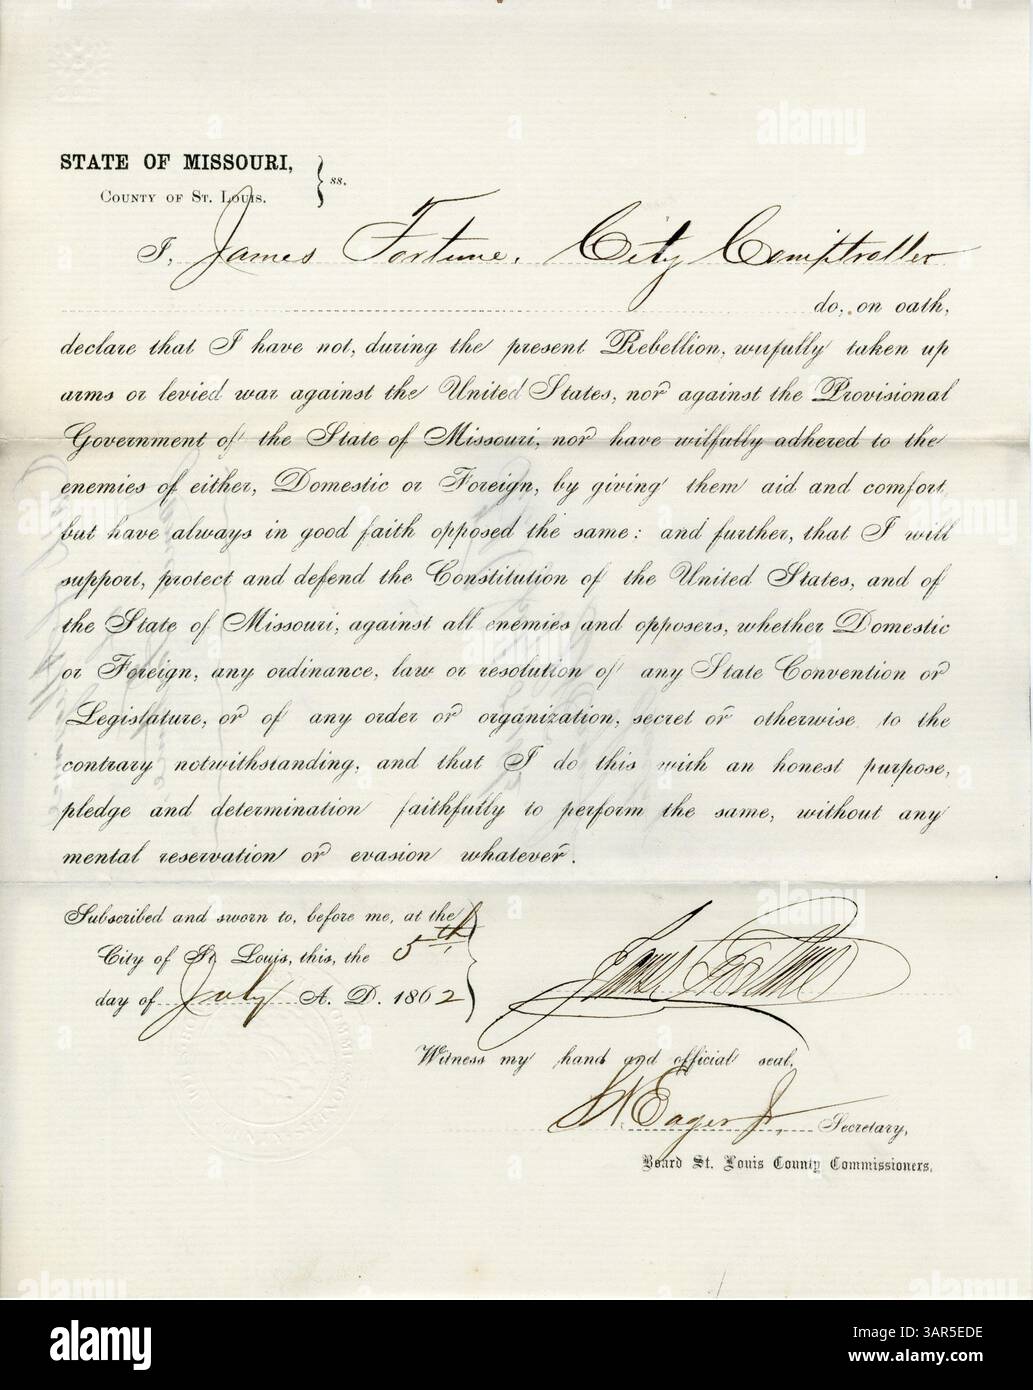 STATE OF MISSOURI,
COUNTY OF ST. LOUIS. } ss.
I, James Fortune, City Comptroller
do, on oath,
declare that I have not, during the present Rebellion, wilfully taken up
arms or levied war against the United States, nor against the Provisional
Government of the State of Missouri, nor have wilfully adhered to the
enemies of either, Domestic or Foreign, by giving them aid and comfort,
but have always in good faith opposed the same: and further, that I will
support, protect and defend the Constitution of the United States, and of
the State of Missouri, against all enemies and opposers, whether Domestic
or Foreign, any ordinance, law or resolution of any State Convention or
Legislature, or of any order or organization, secret or otherwise to the
contrary notwithstanding, and that I do this with an honest purpose,
pledge and determination faithfully to perform the same, without any
mental reservation or evasion whatever.
Subscribed and sworn to, before me, at the
City of St. Louis, this, the 5th,
day of July A. D. 1862
James Fortune
Witness my hand and official seal,
Eager Jr, Secretary,
Board St. Louis County Commissioners.
alamy
Image ID: 3AR5EDE
www.alamy.com